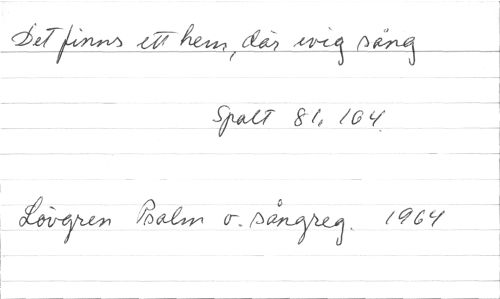 Det finns ett hem, där evig sång
Spalt 81, 104
Lövgren Psalm o. sångreg. 1964